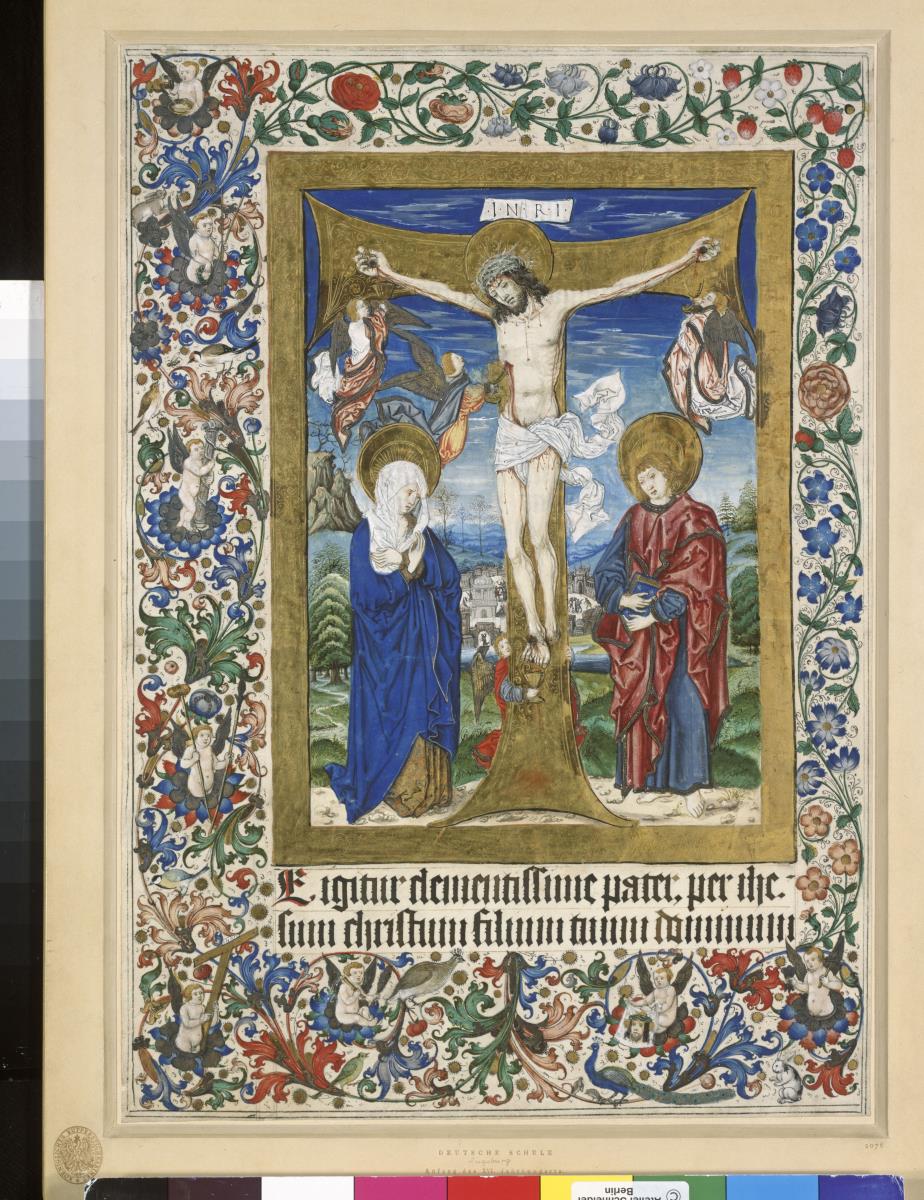 ·I·N·R·I·
E igitur clementissime pater, per ihe:-
sum christum filium tuum dominum
2076
DEUTSCHE SCHULE
Augsburg
Anfang des XVI. Jahrhunderts.
© Atelier Schneider
Berlin